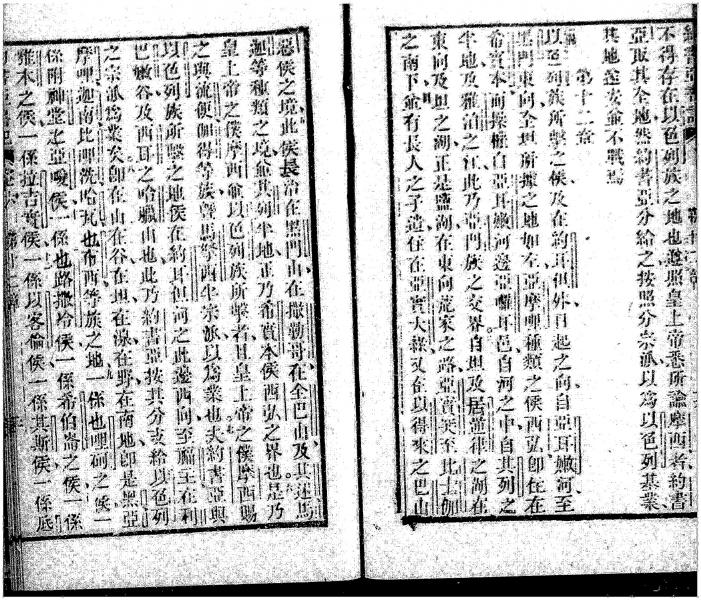 不得存在以色列族之地也遵照皇上帝悉所諭摩西者約書
亞取其全地然約書亞分給之按照分宗派以為以色列基業
其地遂安並不戰焉
第十二章
以色列族所擊之侯及在約耳但外日起之向自亞耳嫩河至
黑門東向全坦所據之地如左亞摩哩種類之侯西弘卽住在
希實本而操權自亞耳嫩河邊亞囉耳邑自河之中自其列之
半地及雅泊之江此乃亞門族之交界自坦及居薹律之湖在
東向及坦之湖正是鹽湖在東向荒家之路亞實芺至此土伽
之南下爺有長人之子遺住在亞實大綠又在以得來之巴山
惡侯之境此侯長治在黑門山在撒勒哥在全巴山及其述馬
迦等種類之境並其列半地正乃希實本侯西弘之界也是乃
皇上帝之僕摩西並以色列族所擊者且皇上帝之僕摩西賜
之與流便伽得等族曁馬拏西半宗派以為業也夫約書亞與
以色列族所擊之地侯在約耳但河之此邊西向至臨王在利
巴嫩谷及西耳之哈臘山也此乃約書亞按其分支給以色列
之宗派為業矣卽在山在谷在坦在源在野在南地卽是黑亞
摩哩迦南比哩洗哈瓦也布西等族之地一係也哩砢之侯一
係附神堂之亞㕙侯一係也路撒冷侯一係希伯崙之侯一係
雅木之侯一係拉吉實侯一係以客倫侯一係其斯侯一係底